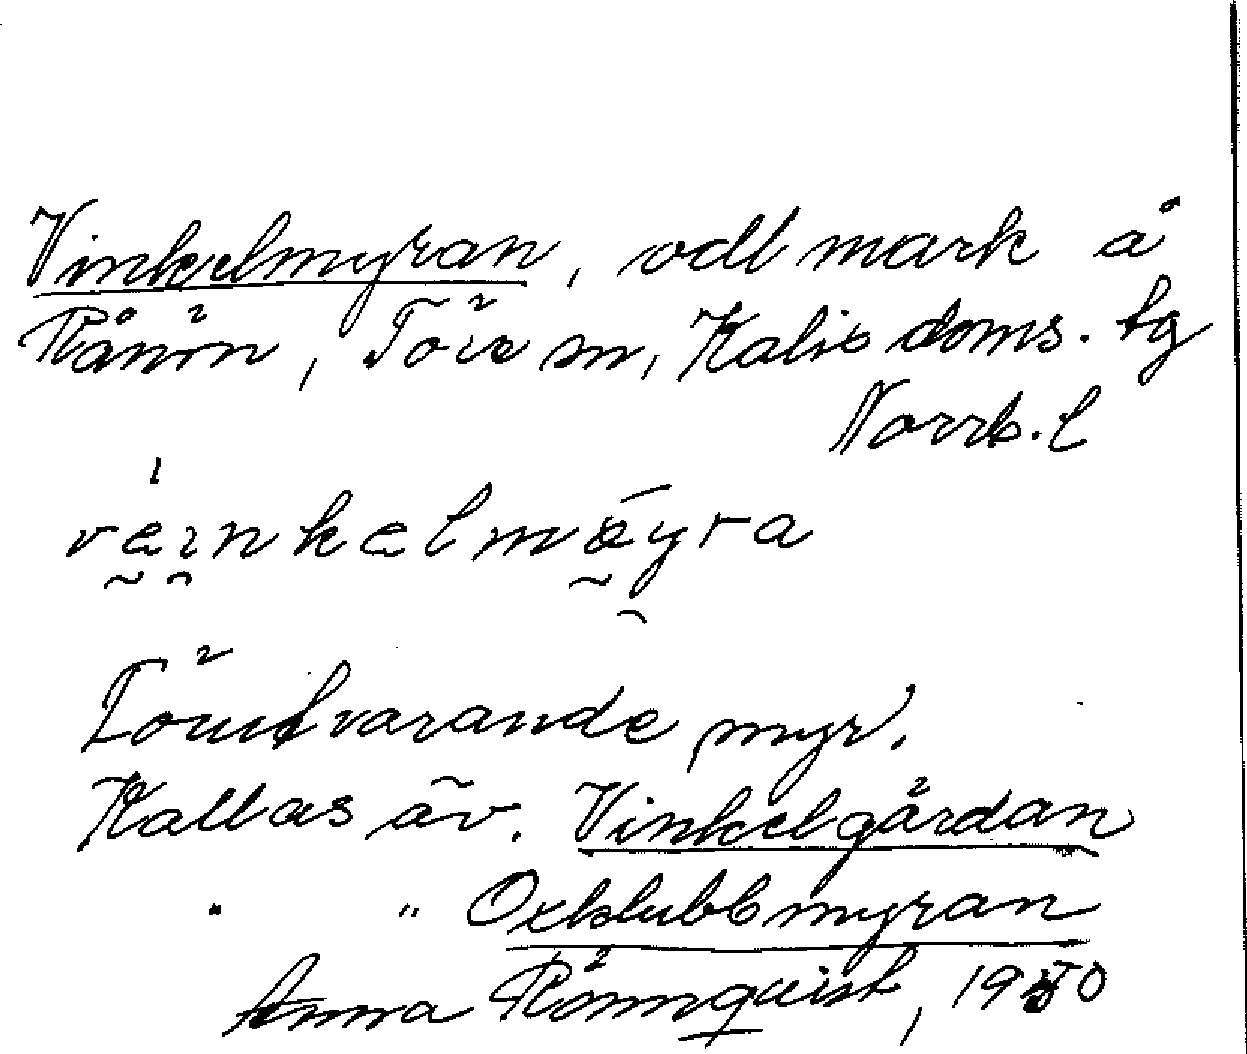 Vinkelmyran, odl mark å
Rånön, Töre sn, Kalix doms. tg
Norrb. l
veinkelmøyra
Förutvarande myr.
Kallas äv. Vinkelgårdan
" " Oxklubbmyran
Anna Rönnquist, 1930